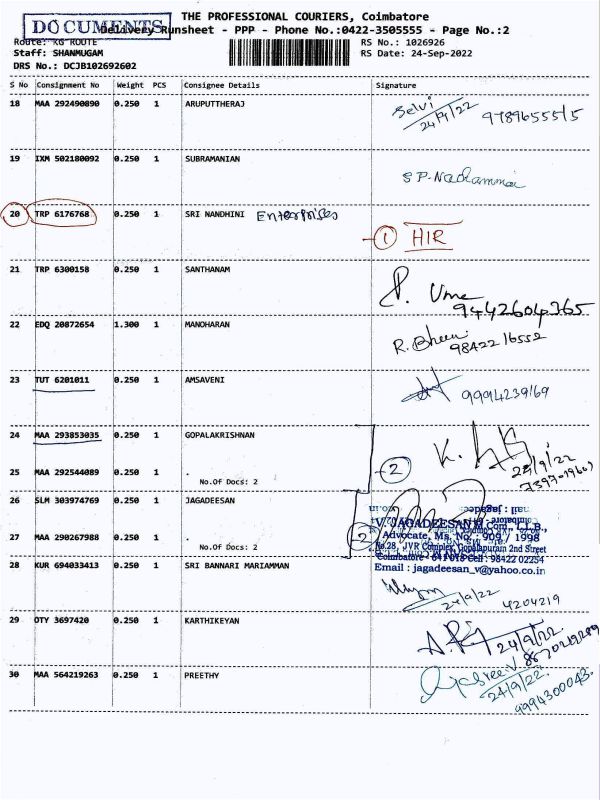 DOCUMENTS
THE PROFESSIONAL COURIERS, Coimbatore
Delivery Runsheet - PPP - Phone No.:0422-3505555 - Page No.:2
Route: KG ROUTE
RS No.: 1026926
Staff: SHANMUGAM
RS Date: 24-Sep-2022
DRS No.: DCJB102692602
S No Consignment No Weight PCS Consignee Details Signature
18 MAA 292490890 0.250 1 ARUPUTTHERAJ
Selvi
24/9/22 9789655515
19 IXM 502180092 0.250 1 SUBRAMANIAN
S P. Nachammai
20 TRP 6176768 0.250 1 SRI NANDHINI Enterprises
1 HIR
21 TRP 6300158 0.250 1 SANTHANAM
Uma
9442604365
22 EDQ 20872654 1.300 1 MANOHARAN
R.
98422 16552
23 TUT 6201011 0.250 1 AMSAVENI
9994239169
24 MAA 293853035 0.250 1 GOPALAKRISHNAN
K.
24/9/22
25 MAA 292544089 0.250 1 .
No.Of Docs: 2
2
26 SLM 303974769 0.250 1 JAGADEESAN
V. JAGADEESAN M.Com., L.L.B.,
Advocate, Ms. No: 909 / 1998
No.28, JVR Complex, Gopalapuram 2nd Street
Coimbatore - 641 018 Cell : 98422 02254
Email : jagadeesan_v@yahoo.co.in
27 MAA 290267988 0.250 1 .
No.Of Docs: 2
2
28 KUR 694033413 0.250 1 SRI BANNARI MARIAMMAN
24/9/22 4204219
29 OTY 3697420 0.250 1 KARTHIKEYAN
24/9/22
30 MAA 564219263 0.250 1 PREETHY
24/9/22
9994300043